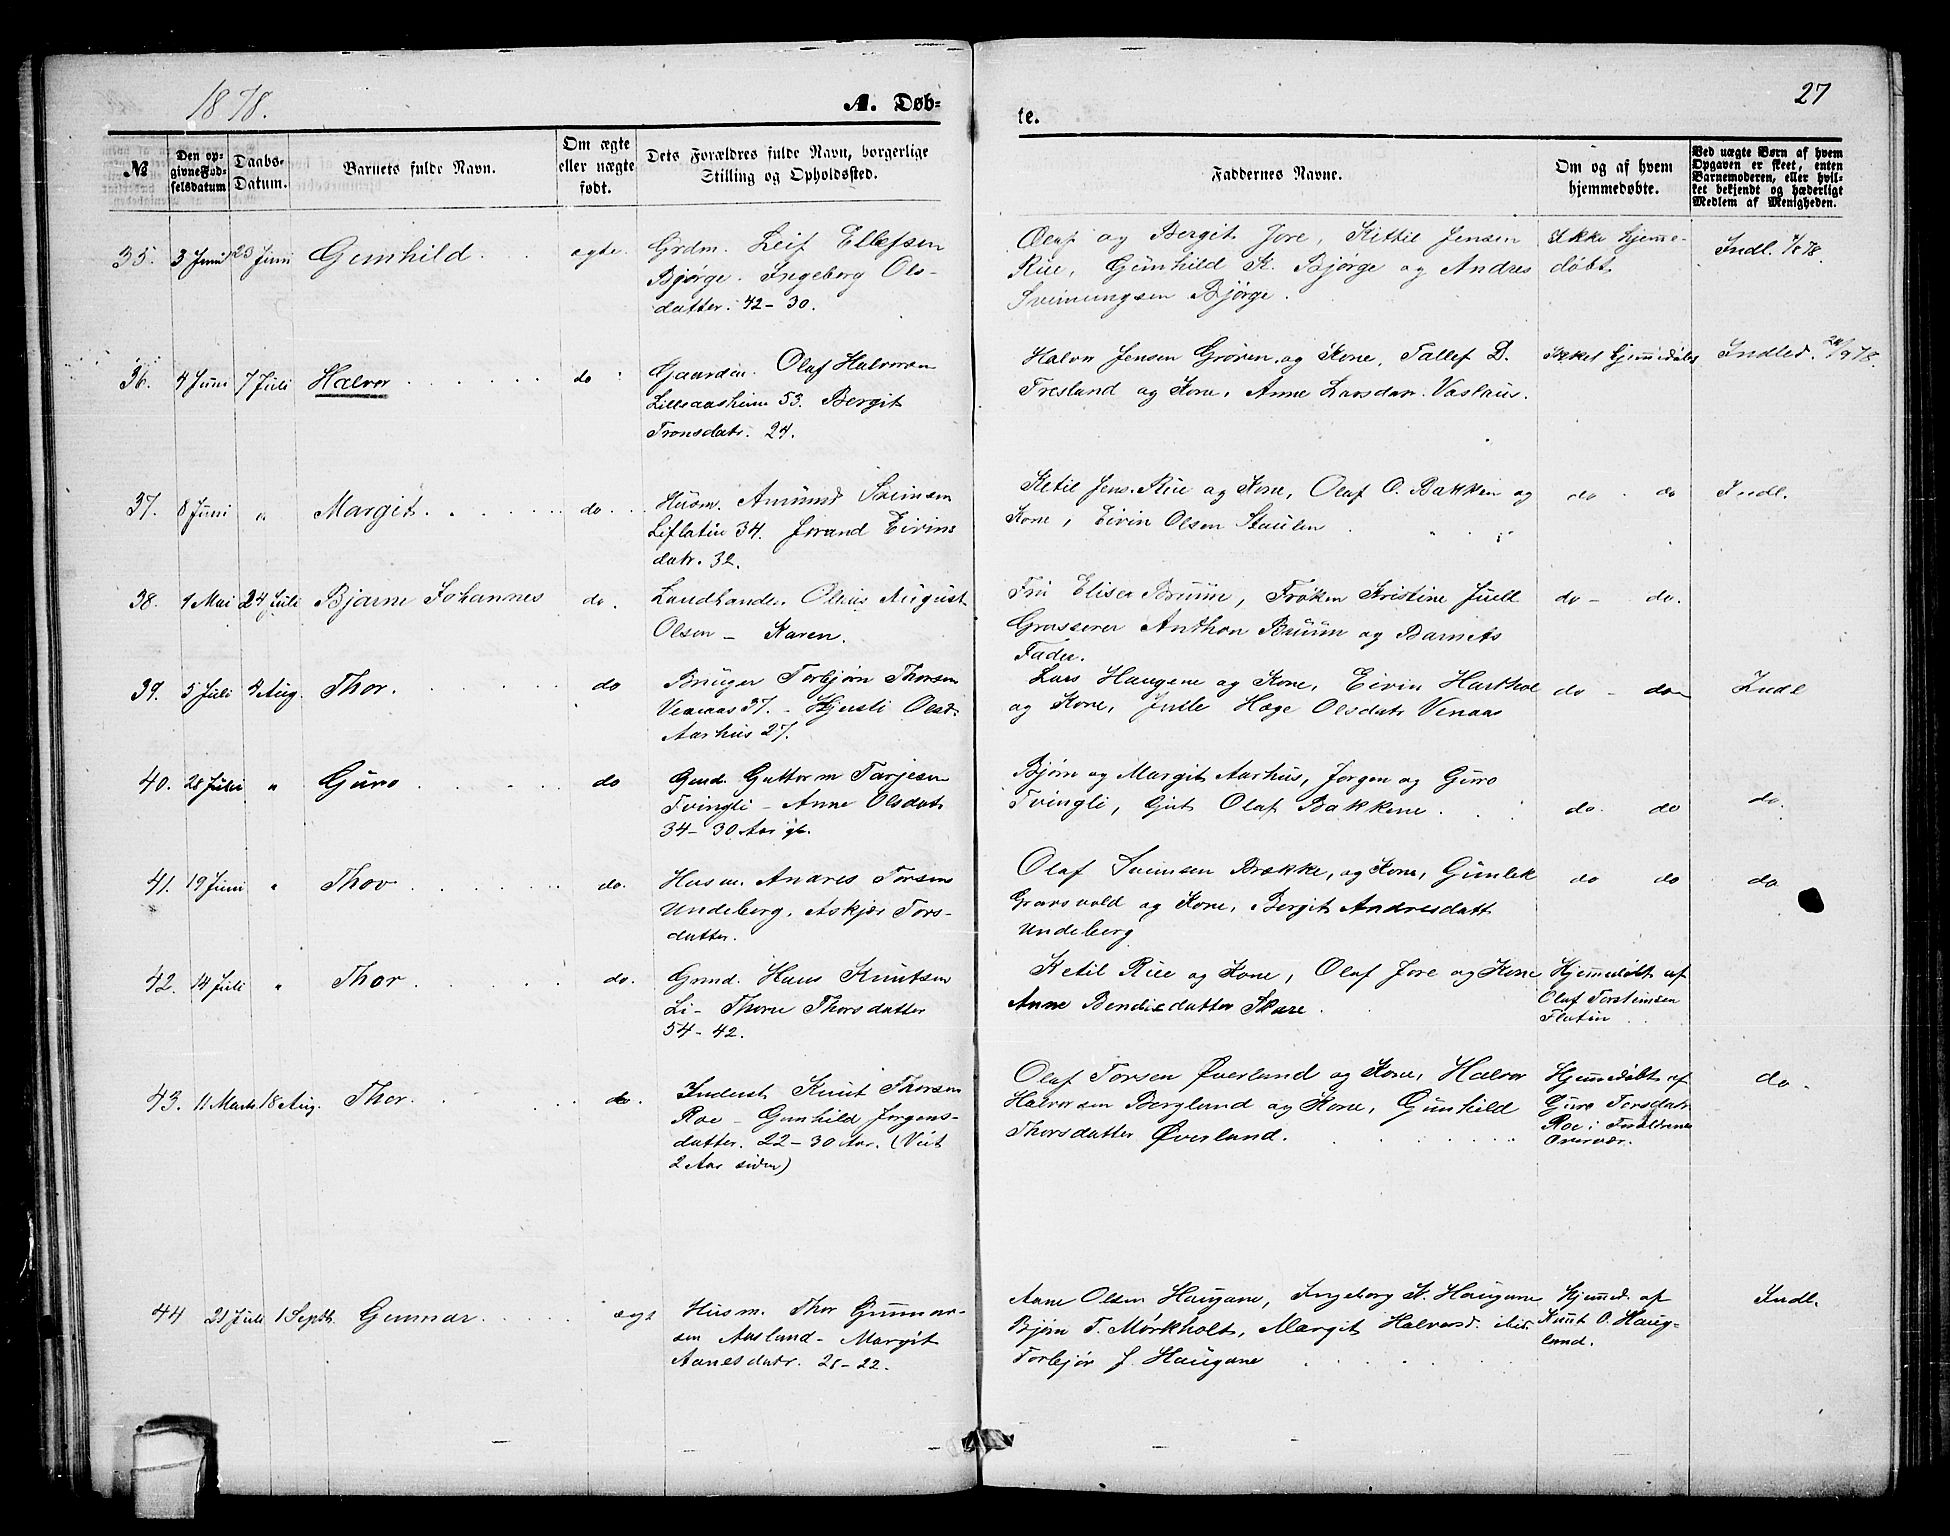 1878.
A. Døb-
te.
27
№
Den op-
givne Fød-
selsdatum
Daabs-
Datum.
Barnets fulde Navn.
Om ægte
eller uægte
født.
Dets Forældres fulde Navn, borgerlige
Stilling og Opholdssted.
Faddernes Navne.
Om og af hvem
hjemmedøbte.
Ved uægte Børn af hvem
Opgaven er skeet, enten
Barnemoderen, eller hvil-
ket bekjendt og hæderligt
Medlem af Menigheden.
35. 3 Juni 23 Juni Gunhild . . . ægte.
Grdm. Leif Ellefsen
Bjørge. Ingeberg Ols-
datter. 42-30.
Olaf og Bergit Jore, Kittil Jensen
Rue, Gunhild K. Bjørge og Andres
Sveinungsen Bjørge.
Ikke hjemme-
døbt.
Indl.
36. 4 Juni 7 Juli Halvor . . . do
Gaardm. Olaf Halvorsen
Lilleaasheim 53. Bergit
Tronsdatr. 24.
Halvor Jensen Grøven og Kone, Tallef D.
Tresland og Kone, Anne Larsdatr. Vashus.
Indled.
37. 8 Juni " Margit . . . do
Husm. Amund Sveinsen
Liflatin 34. Jorand Eivins
datr. 32.
Ketil Jens. Rue og Kone, Olaf O. Bakken og
Kone, Eivin Olsen Staulen
do - do
Indl.
38. 1 Mai 24 Juli Bjarne Johannes do.
Landhandler August
Olsen - Karen.
Fru Elise Bruun, Frøken Kristine Juell
Grosserer Anthon Bruun og Barnets
Fader.
do - do.
39. 5 Juli 4 Aug. Thor. . . . do
Bruger Torbjørn Thorsen
Venaas 37. - Kjersti Olsd.
Aarhus 27.
Lars Haugene og Kone, Eivin
og Kone, Hæge Olsdatr Venaas
do - do
Indl
40. 28 Juli " Guro . . . do
Grmd. Guttorm Tarjesen
Tvingli - Anne Olsdatr
34-30 Aar gl.
Bjørn og Margit Aarhus, Jørgen og Guro
Tvingli, Gut Olaf Bakkene.
do. do
do.
41. 19 Juni " Thov . . . do.
Husm. Andres Torsens
Undeberg, Askjær Tors-
datter.
Olaf Sveinsen Brække, og Kone, Gunlek
Gransvold og Kone, Bergit Andresdatt
Undeberg
do do
do
42. 14 Juli " Thor . . . do.
Grmd. Hans Knutsen
Li- Thorn Thorsdatter
54-42.
Ketil Rue og Kone, Olaf Jore og Kone
Anne Bendiksdatter Skare.
Hjemmedøbt af
Olaf Torsteinsen
Flatin
43. 11 Marts. 18 Aug. Thor. . . . do
Inderst Knut Thorsen
Roe - Gunhild Jørgens-
datter. 22-30 Aar. (Viet
2 Aar siden)
Olaf Torsen Øverland og Kone, Halvor
Halvorsen Bergland og Kone, Gunhild
Thorsdatter Øverland.
Hjemmedøbt af
Guro Torsdatr
Roe i Forældrenes
Overvær.
do.
44 21 Juli 1 Septb. Gunnar. . . . ægt
Husm. Thor Gunnar-
sen Aasland - Margit
Aanesdatr. 28-22.
Aane Olsen Haugane, Ingeborg K. Haugane
Bjørn T. Mørkholt, Margit Halvorsd.
Torbjør J. Haugane
Hjemmed. af
Knut O. Haug-
land.
Indl.